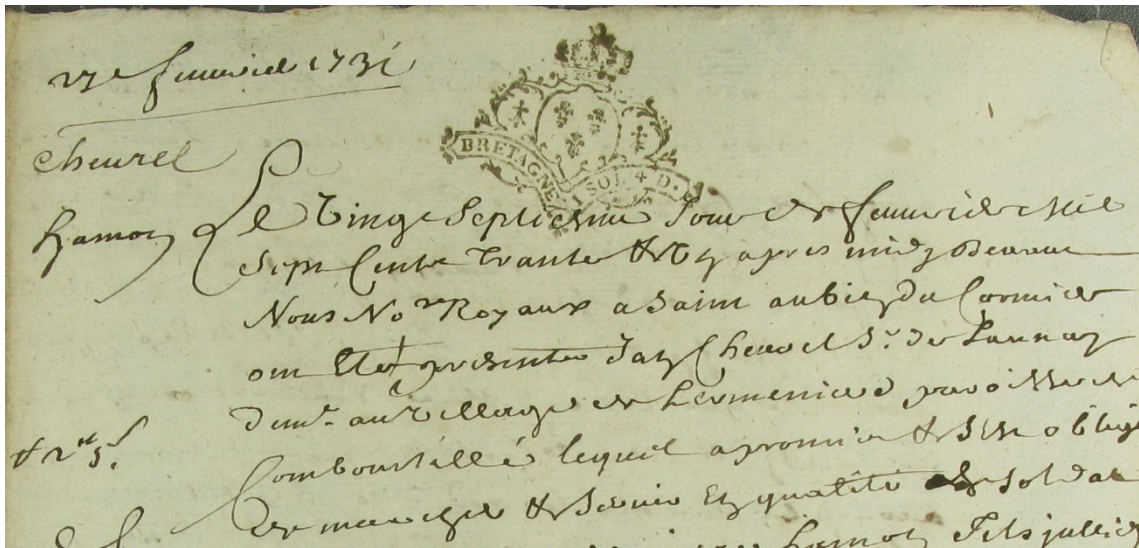 27e feuvrier 1731
BRETAGNE 1 SOL 4 D.
cheurel
hamon
Le Vingt Septiesme Jour de feuvrier mil
Sept Cents Trante & Un apres midy Devant
Nous Nores Royaux a Saint aubin du Cormier
ont Eté presente Jan Cheurel Sr. de Launay
demt. au Village de Lermeniere paroisse de
Combourtillé lequel a promis & s'est oblige
de marcher & Servir En qualité de Soldat
hamon Fils jullien